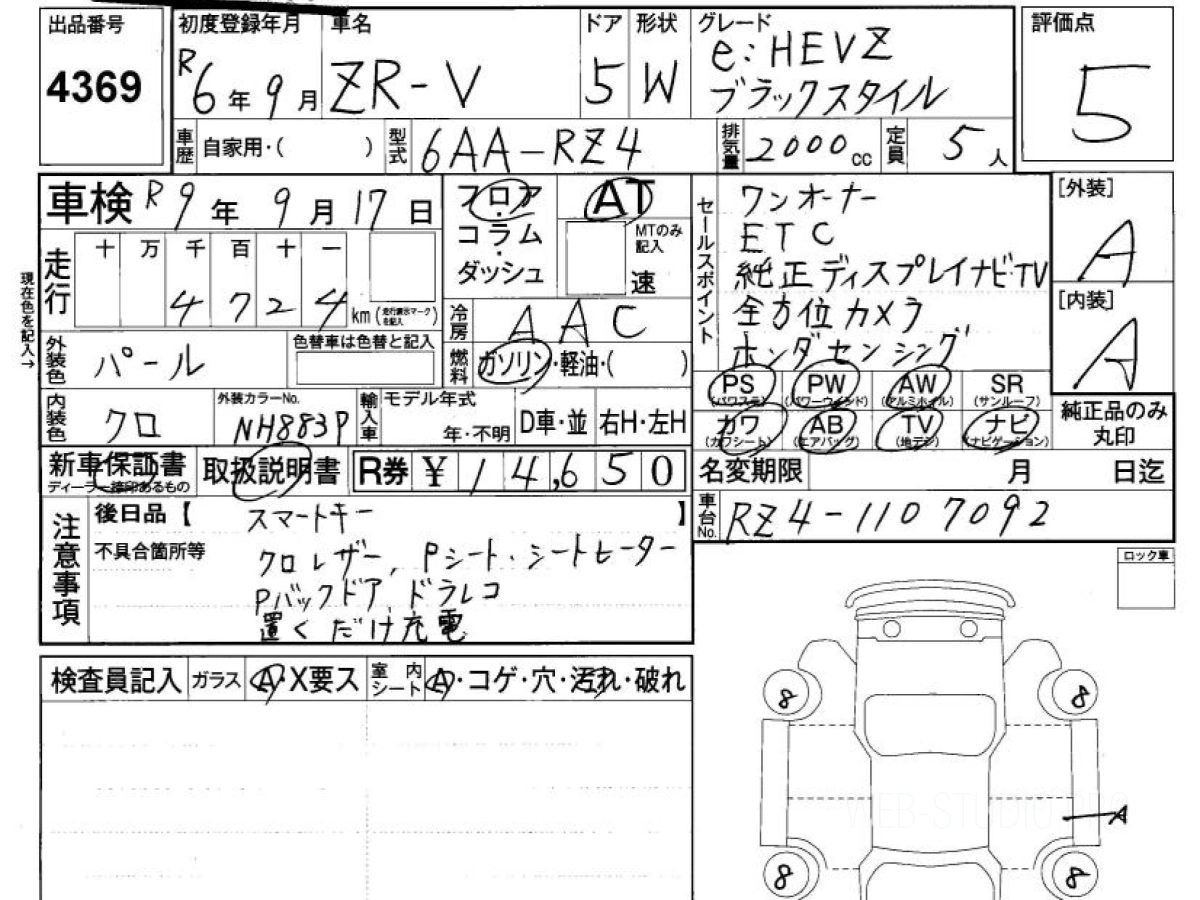 出品番号
4369
初度登録年月
R6年9月
車名
ZR-V
ドア
5
形状
W
グレード
e:HEVZ
ブラックスタイル
評価点
5
車歴
自家用・( )
型式
6AA-RZ4
排気量
2000cc
定員
5人
車検 R9年9月17日
フロア
コラム
ダッシュ
AT
MTのみ
記入
速
セールスポイント
ワンオーナー
ETC
純正ディスプレイナビ・TV
全方位カメラ
ホンダセンシング
[外装]
A
[内装]
A
現在色を記入→
走行
十 万 千 百 十 一
4 7 2 4 km (走行表示マークを記入)
冷房
AAC
外装色
パール
色替車は色替と記入
燃料
ガソリン・軽油・( )
PS
(パワステ)
PW
(パワーウインド)
AW
(アルミホイル)
SR
(サンルーフ)
カワ
(カワシート)
AB
(エアバッグ)
TV
(地デジ)
ナビ
(ナビゲーション)
純正品のみ
丸印
内装色
クロ
外装カラーNo.
NH883P
輸入車
モデル年式
年・不明
D車・並
右H・左H
新車保証書
ディーラー捺印あるもの
取扱説明書
R券 ¥ 14,650
名変期限 月 日迄
車台No.
RZ4-1107092
注意事項
後日品【 スマートキー 】
不具合箇所等
クロレザー, Pシート・シートヒーター
Pバックドア, ドラレコ
置くだけ充電
ロック車
検査員記入
ガラス
A・X要ス
室内シート
A・コゲ・穴・汚れ・破れ
8
8
A
8
8
WEB-STUDIO.PRO